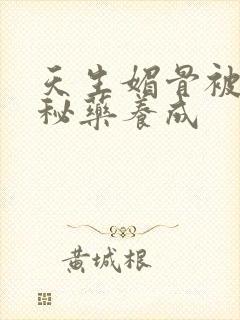 天生媚骨被
秘藥養成
黃城根